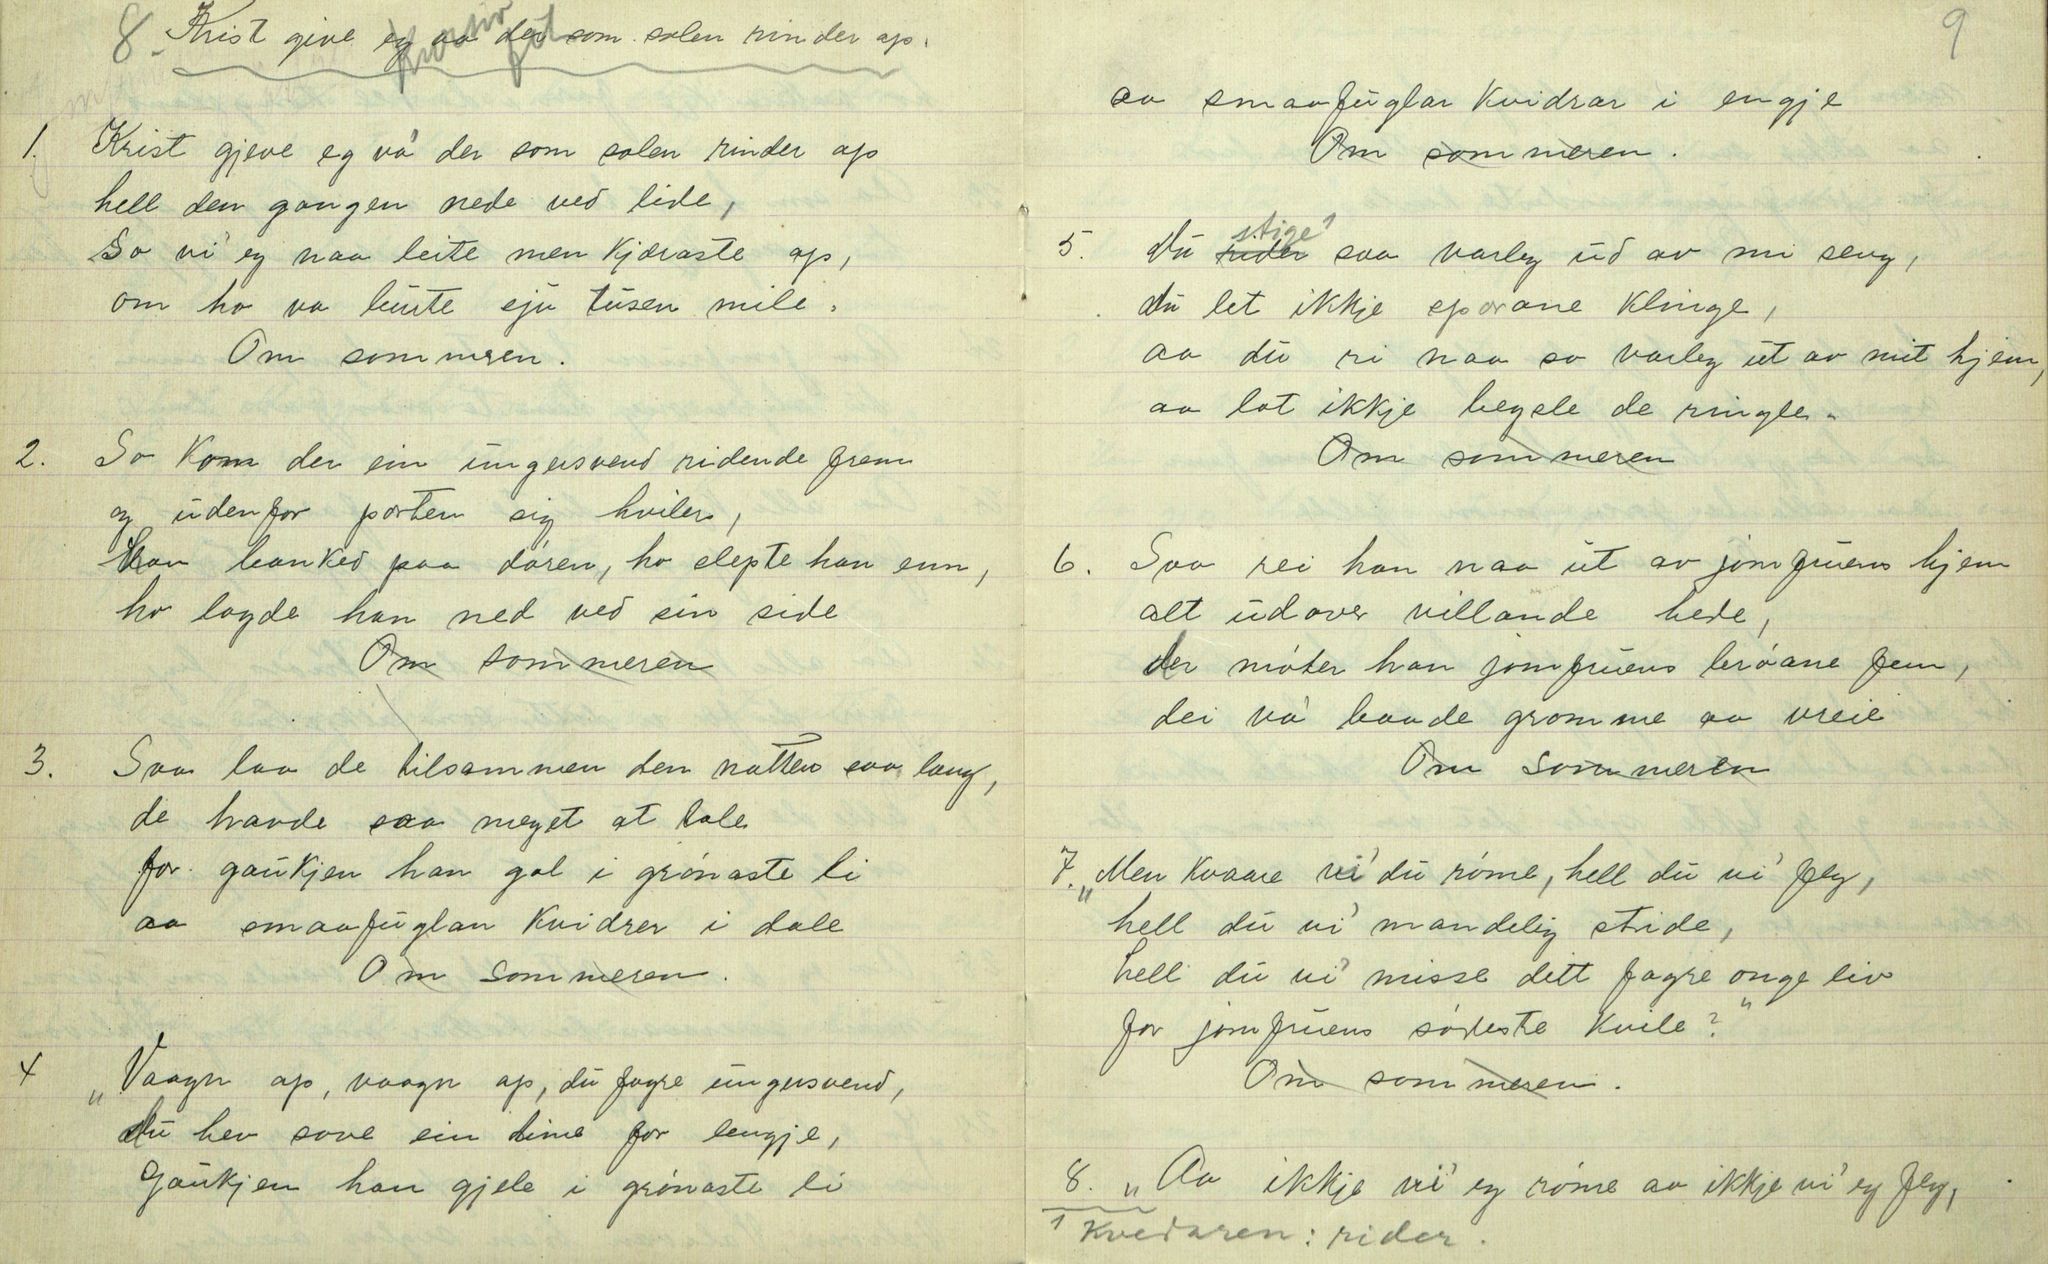 8. Krist give eg va der som solen rinder op.
1. Krist gjeve eg va' der som solen rinder op
hell den gongen nede ved lide,
So vi' eg naa leite men kjæraste op,
om ho va burte sju tusen mile.
Om sommeren.
2. So kom der ein ungersvend ridende frem
og udenfor porten sig hviler,
han banked paa døren, ho slepte han enn,
ho lagde han ned ved sin side
Om sommeren
3. Saa laa de tilsammen den natten saa lang,
de havde saa meget at tale
for gaukjen han gol i grønaste li
aa smaafuglan kvidrer i dale
Om sommeren.
4 „Vaagn op, vaagn op, du fagre ungersvend,
du hev sove ein time for lengje,
Gaukjen han gjele i grønaste li
9
aa smaafuglar kvidrar i engje
Om sommeren.
stige 1
5. Du rider saa varleg ud av mi seng,
du let ikkje sporane klinge,
aa du ri naa so varleg ut av mit hjem,
aa lat ikkje begsle de ringle.
Om sommeren
6. Saa rei han naa ut av jomfruens hjem
alt udover villande hede,
der møter han jomfruens brøane fem,
dei va' baade gromme aa vreie
Om sommeren
7. „Men kvaare vi' du røme, hell du vi' fly,
hell du vi' mandelig stride,
hell du vi' misse ditt fagre onge liv
for jomfruens sødeste kvile?"
Om sommeren.
8. „Aa ikkje vi' eg røme aa ikkje vi' eg fly,
1 Kvedaren: rider.